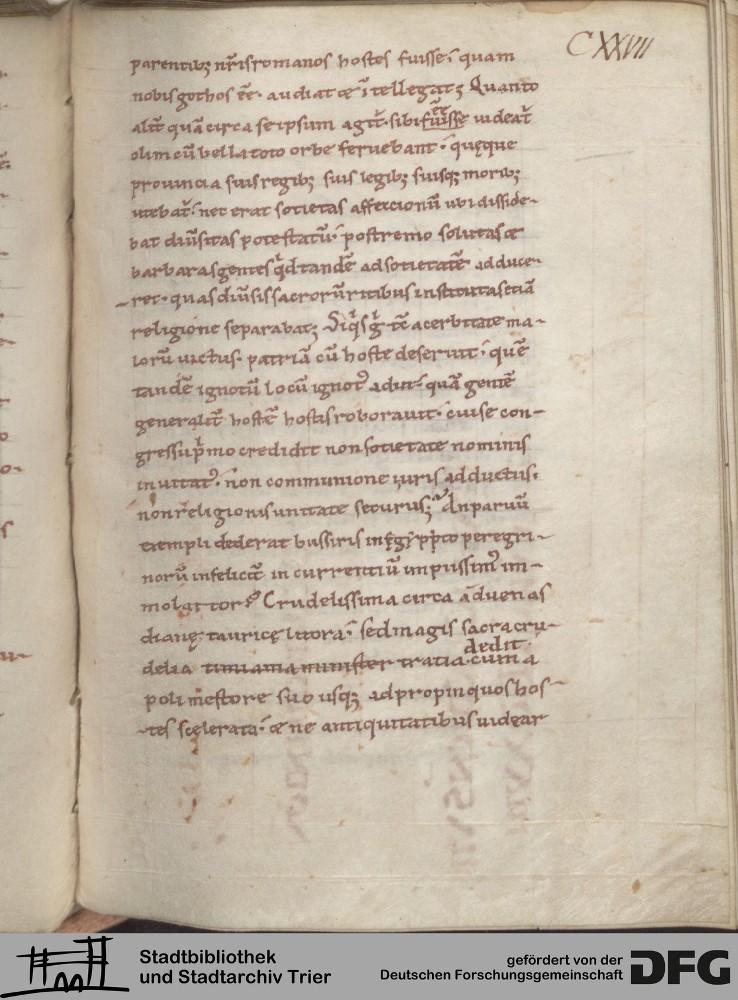 CXXVII
parentib; nr̄isromanos hostes fuisse; quam
nobisgothos ēē. audiat & ītellegat; Quanto
alit̄ quā circa seipsum agit̄. sibi fuisse uideat̄
ēē
olim cū bella toto orbe feruebant; quęque
prouincia suisregib; suis legib; suisq; morib;
utebat̄; nec erat societas affeccionū ubi disside-
bat diūsitas potestatū; postremo solutas &
barbarasgentes qd tandē adsocietatē adduce-
ret. quasdiūsissacrorūritibus institutasetiā
religione separabat; Siqsḡ tc̄ acerbitate ma-
lorū uictus. patriā cū hoste deseruit; quē
tandē ignotū locū ignot᷒ adiit; quā gentē
generalit̄ hostē hostisrorborauit. cuise con-
gressup̄mo credidit nonsocietate nominis
inuitat᷒. non communione iuris adductus.
nonreligionisunitate securus; Anparuū
exempli dederat bussiris inęgypto peregri-
norū infelicit̄ incurrentiū impiissim᷒ im-
molat tor? Crudelissima circa aduenas
dianę tauricę litora; sedmagis sacracru-
delia timiama minister tratia. cum a
dedit.
polimestore suo usq; adpropinquoshos-
tes scęlerata; & ne antiquitatibus uidear
Stadtbibliothek
und Stadtarchiv Trier
gefördert von der
Deutschen Forschungsgemeinschaft
DFG